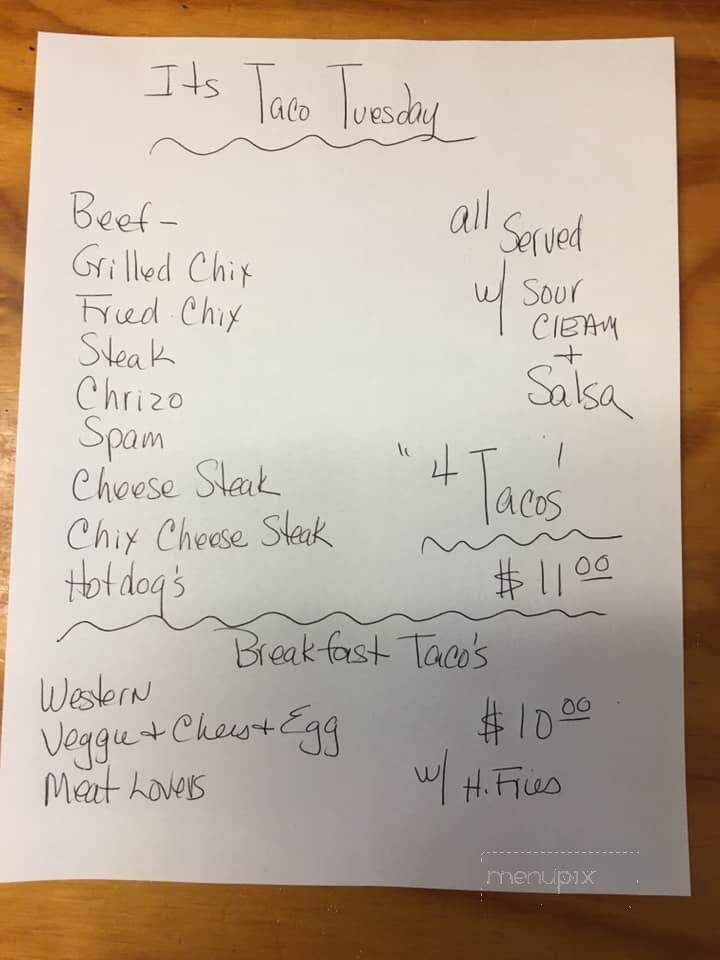 Its Taco Tuesday
Beef-
Grilled Chix
Fried Chix
Steak
Chrizo
Spam
Cheese Steak
Chix Cheese Steak
Hotdog's
all Served
w/ Sour
CrEAM
+
Salsa
"4 Tacos'
$11.00
Breakfast Taco's
Western
Veggie + Chees + Egg
Meat Lovers
$10.00
w/ H. Fries
menupix